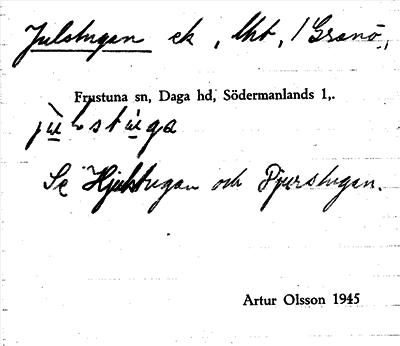 Julstugan ek, Ukt, / Granö,
Frustuna sn, Daga hd, Södermanlands 1,.
Se Hjulstugan och Djurstugan.
Artur Olsson 1945